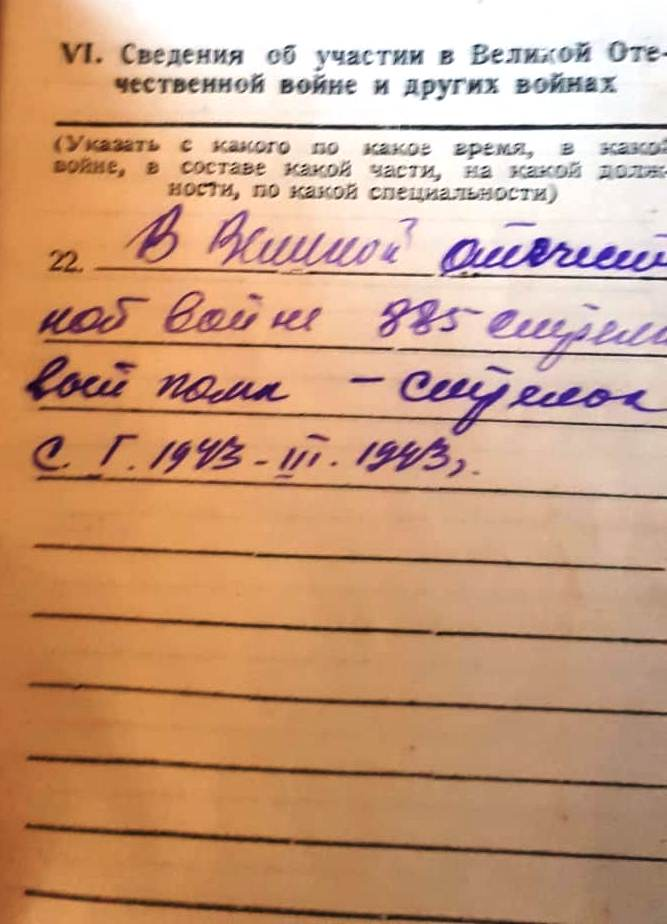 VI. Сведения об участии в Великой Оте-
чественной войне и других войнах
(Указать с какого по какое время, в какой
войне, в составе какой части, на какой долж-
ности, по какой специальности)
22. В Великой отечест
ной войне 885 стрелк
вый полк - стрелок
с I. 1943 - III. 1943,